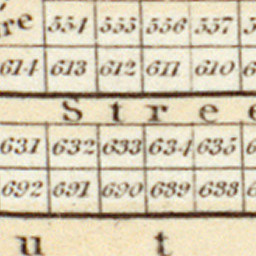 re 554 555 556 557
614 613 612 611 610
Stree
631 632 633 634 635
692 691 690 689 688
u t